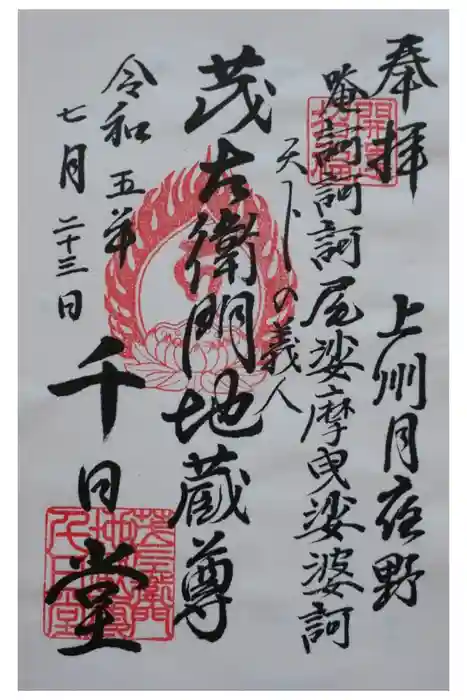 奉拝
上州月夜野
唵訶訶訶尾娑摩曳娑婆訶
天下の義人
茂左衛門地蔵尊
令和五年
七月二十三日
千日堂
茂左衛門
地蔵尊
千日堂